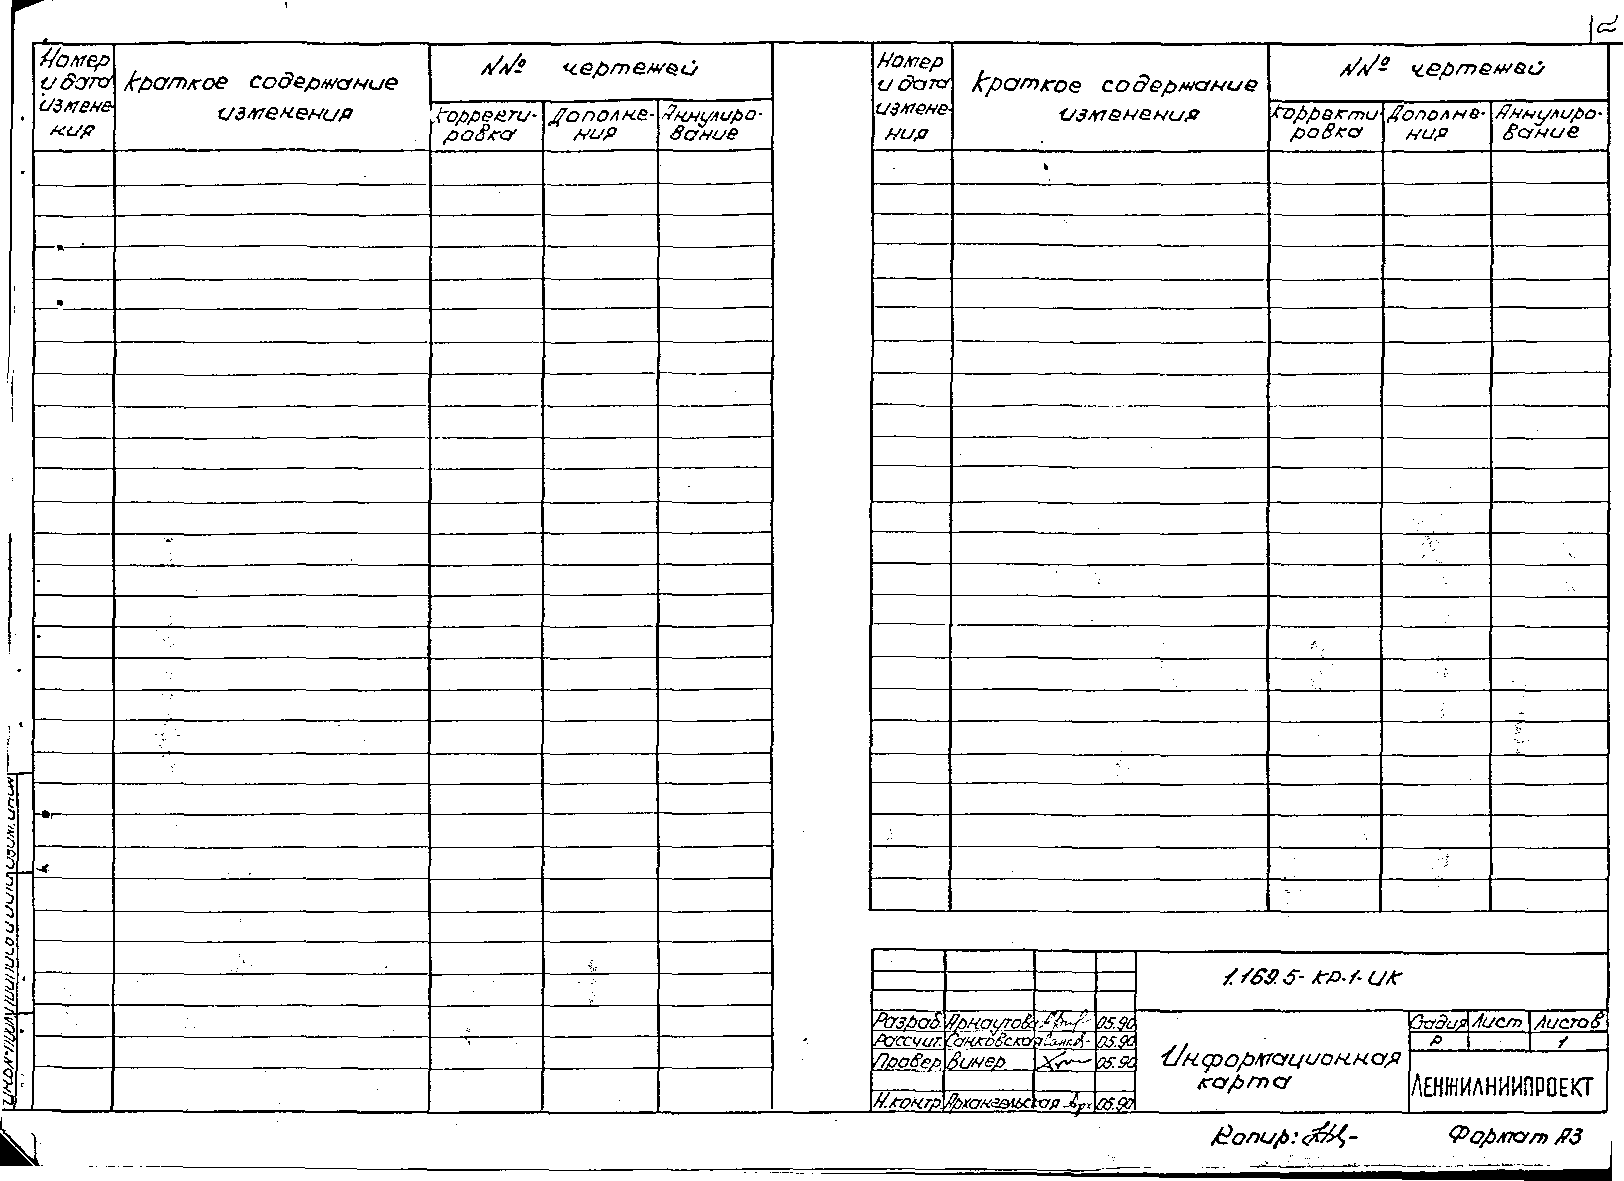 Номер
и дата
измене-
ния
Краткое содержание
изменения
NNº чертежей
Корректи-
ровка
Дополне-
ния
Аннулиро-
вание
Номер
и дата
измене-
ния
Краткое содержание
изменения
NNº чертежей
Корректи-
ровка
Дополне-
ния
Аннулиро-
вание
1.169.5-КР.1-ИК
Разраб. Арнаутова 05.90
Рассчит. Санковская 05.90
Провер. Винер 05.90
Н.контр. Архангельская 05.90
Информационная
карта
Стадия Лист Листов
Р 1
ЛЕНЖИЛНИИПРОЕКТ
Копир:
Формат А3